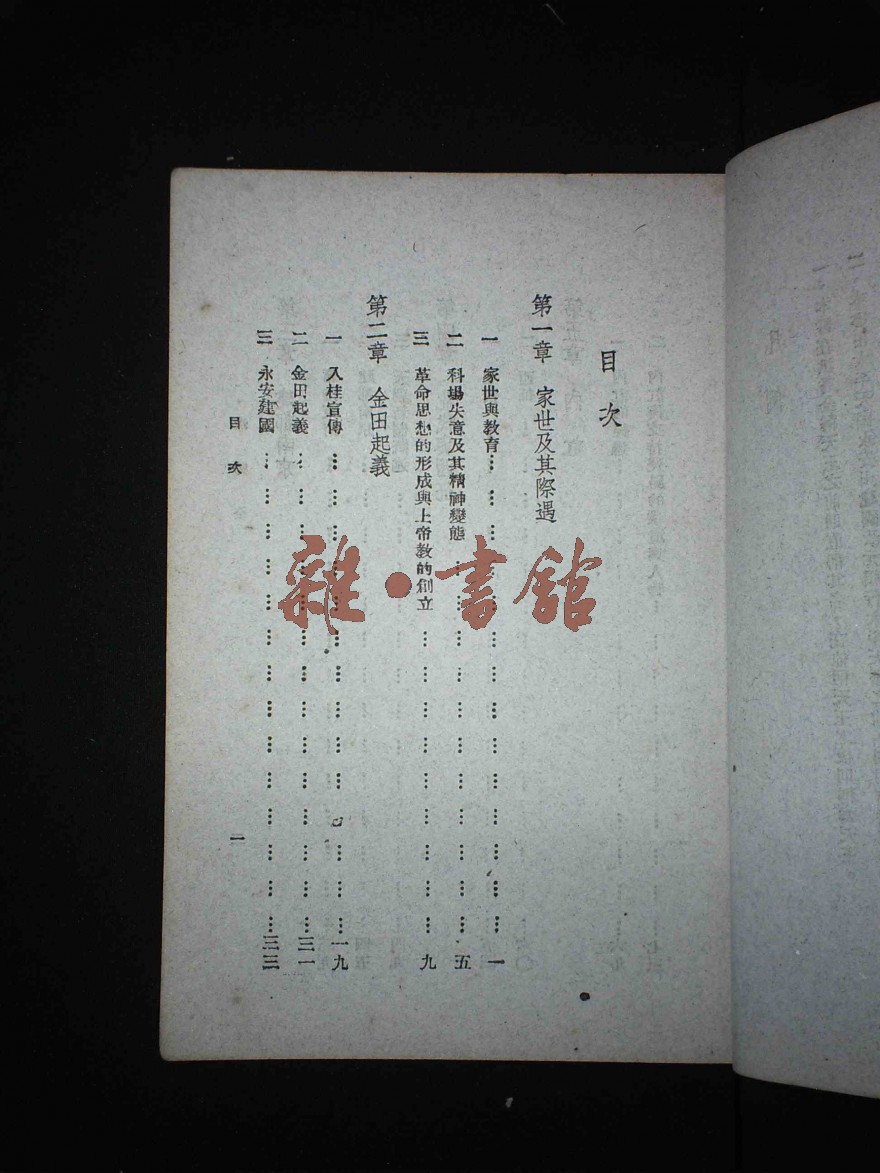 目次
第一章 家世及其際遇
一 家世與教育…………………………一
二 科場失意及其精神變態…………………………五
三 革命思想的形成與上帝教的創立…………………………九
第二章 金田起義
一 入桂宣傳…………………………一九
二 金田起義…………………………三一
三 永安建國…………………………三三
目次
一
雜·書館